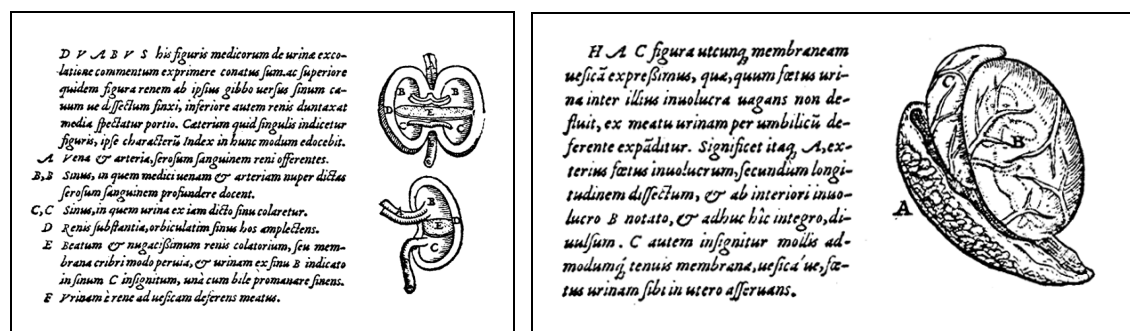 D V A B V S his figuris medicorum de urinæ exco-
latione commentum exprimere conatus sum. ac superiore
quidem figura renem ab ipsius gibbo uersus sinum ca-
uum ue dissectum finxi, inferiore autem renis duntaxat
media spectatur portio. Cæterum quid singulis indicetur
figuris, ipse characterũ Index in hunc modum edocebit.
A Vena & arteria, serosum sanguinem reni offerentes.
B,B Sinus, in quem medici uenam & arteriam nuper dictas
serosum sanguinem profundere docent.
C,C Sinus, in quem urina ex iam dicto sinu colaretur.
D Renis substantia, orbiculatim sinus hos amplectens.
E Beatum & nugacissimum renis colatorium, seu mem-
brana cribri modo peruia, & urinam ex sinu B indicato
in sinum C insignitum, unà cum bile promanare sinens.
F Vrinam è rene ad uesicam deferens meatus.
B B
D E
C
B
D
E
C
H A C figura utcunq; membraneam
uesicã expreßimus, quæ, quum fœtus uri-
na inter illius inuolucra uagans non de-
fluit, ex meatu urinam per umbilicũ de-
ferente expãditur. Significet itaq; A, ex-
terius fœtus inuolucrum, secundum longi-
tudinem dissectum, & ab interiori inuo-
lucro B notato, & adhuc hîc integro, di-
uulsum. C autem insignitur mollis ad-
modumq; tenuis membrana, uesicá ue, fœ-
tus urinam sibi in utero asseruans.
C
B
A